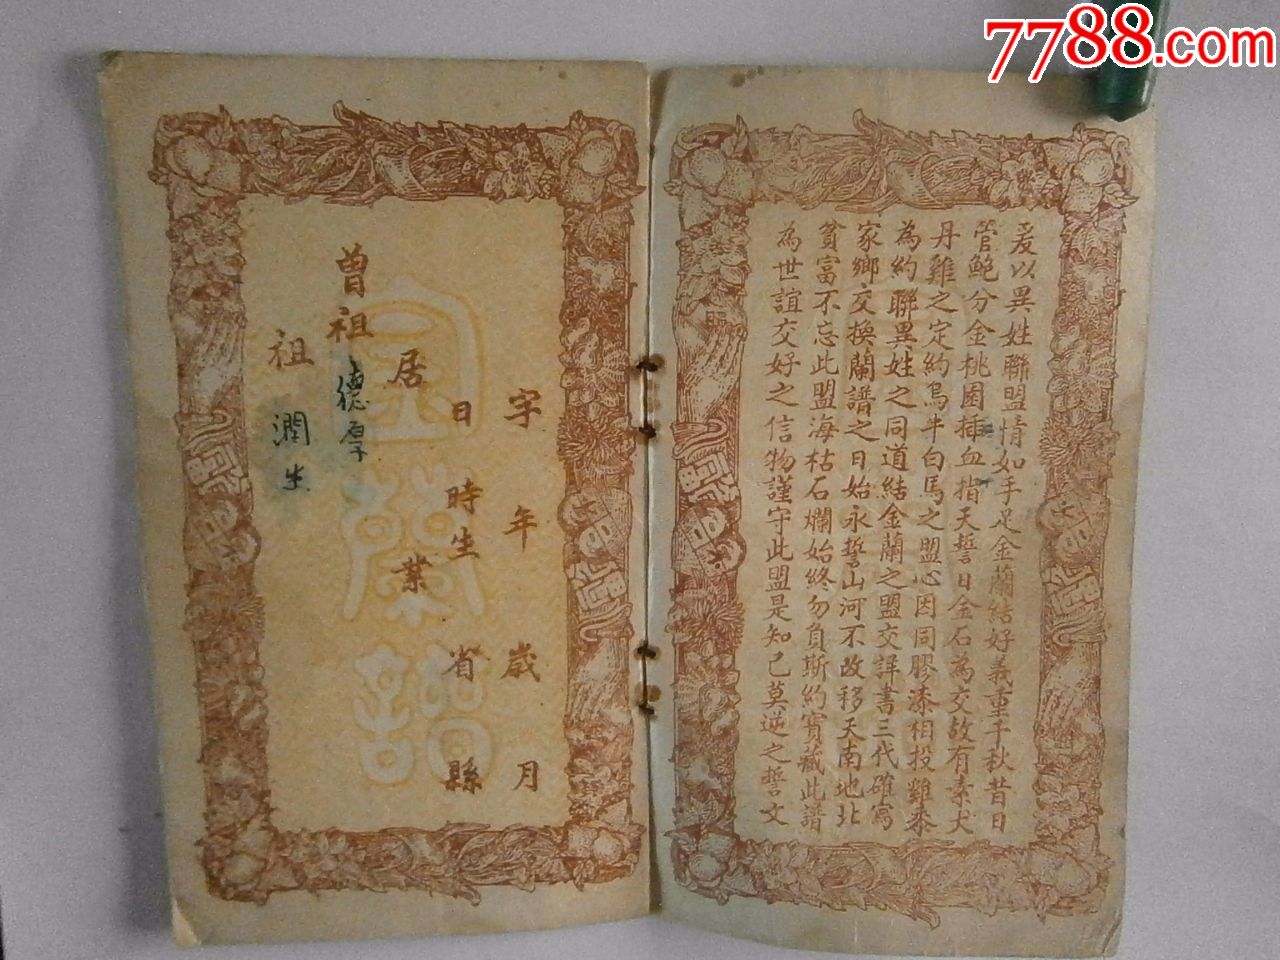 7788.com
爰以異姓聯盟情如手足金蘭結好義重千秋昔日
管鮑分金桃園插血指天誓日金石為交故有素犬
丹雞之定約烏牛白馬之盟心因同膠漆相投雞黍
為約聯異姓之同道結金蘭之盟交詳書三代確寫
家鄉交換蘭譜之日始永誓山河不改移天南地北
貧富不忘此盟海枯石爛始終勿負斯約寶藏此譜
為世誼交好之信物謹守此盟是知己莫逆之誓文
字年歲月
日時生省縣
居業
曾祖德厚
祖潤生
金蘭譜